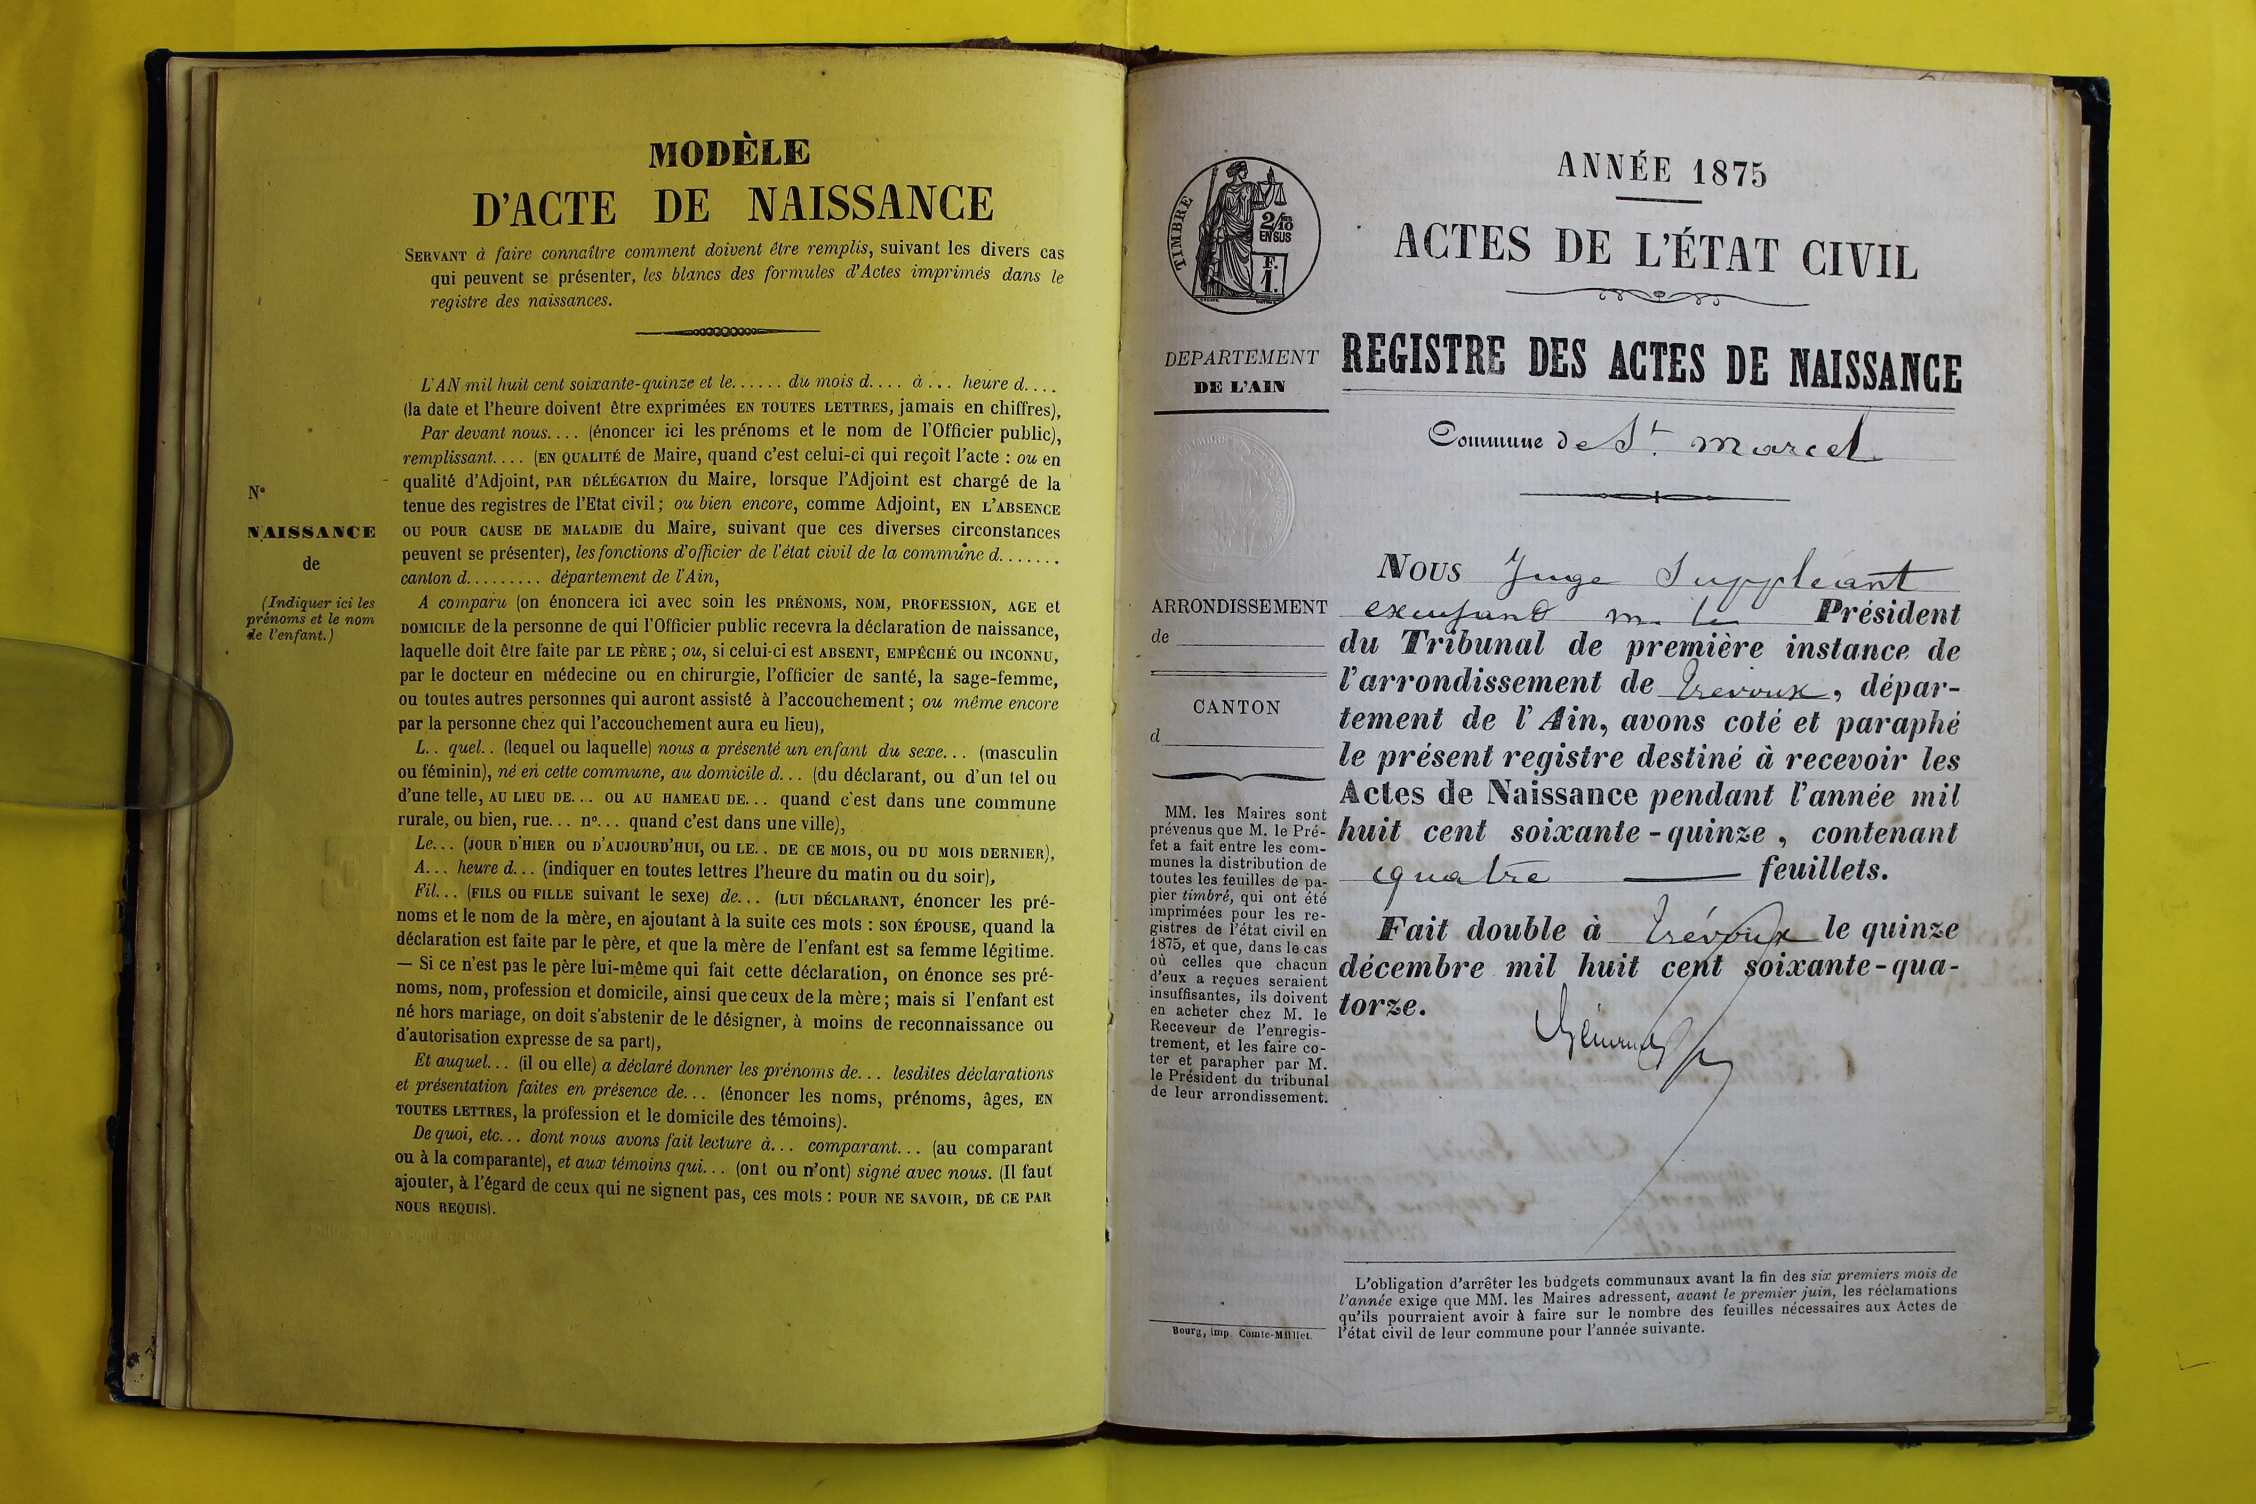 MODÈLE
D'ACTE DE NAISSANCE
SERVANT à faire connaître comment doivent être remplis, suivant les divers cas
qui peuvent se présenter, les blancs des formules d'Actes imprimés dans le
registre des naissances.
N°
NAISSANCE
de
(Indiquer ici les
prénoms et le nom
de l'enfant.)
L'AN mil huit cent soixante-quinze et le...... du mois d.... à ... heure d....
(la date et l'heure doivent être exprimées EN TOUTES LETTRES, jamais en chiffres),
Par devant nous.... (énoncer ici les prénoms et le nom de l'Officier public),
remplissant.... (EN QUALITÉ de Maire, quand c'est celui-ci qui reçoit l'acte : ou en
qualité d'Adjoint, PAR DÉLÉGATION du Maire, lorsque l'Adjoint est chargé de la
tenue des registres de l'Etat civil; ou bien encore, comme Adjoint, EN L'ABSENCE
OU POUR CAUSE DE MALADIE du Maire, suivant que ces diverses circonstances
peuvent se présenter), les fonctions d'officier de l'état civil de la commune d.......
canton d......... département de l'Ain,
A comparu (on énoncera ici avec soin les PRÉNOMS, NOM, PROFESSION, AGE et
DOMICILE de la personne de qui l'Officier public recevra la déclaration de naissance,
laquelle doit être faite par LE PÈRE; ou, si celui-ci est ABSENT, EMPÊCHÉ OU INCONNU,
par le docteur en médecine ou en chirurgie, l'officier de santé, la sage-femme,
ou toutes autres personnes qui auront assisté à l'accouchement; ou même encore
par la personne chez qui l'accouchement aura eu lieu),
L.. quel.. (lequel ou laquelle) nous a présenté un enfant du sexe... (masculin
ou féminin), né en cette commune, au domicile d... (du déclarant, ou d'un tel ou
d'une telle, AU LIEU DE... OU AU HAMEAU DE... quand c'est dans une commune
rurale, ou bien, rue... n°... quand c'est dans une ville),
Le... (JOUR D'HIER OU D'AUJOURD'HUI, OU LE.. DE CE MOIS, OU DU MOIS DERNIER),
A... heure d... (indiquer en toutes lettres l'heure du matin ou du soir),
Fil... (FILS OU FILLE suivant le sexe) de... (LUI DÉCLARANT, énoncer les pré-
noms et le nom de la mère, en ajoutant à la suite ces mots : SON ÉPOUSE, quand la
déclaration est faite par le père, et que la mère de l'enfant est sa femme légitime.
— Si ce n'est pas le père lui-même qui fait cette déclaration, on énonce ses pré-
noms, nom, profession et domicile, ainsi que ceux de la mère; mais si l'enfant est
né hors mariage, on doit s'abstenir de le désigner, à moins de reconnaissance ou
d'autorisation expresse de sa part),
Et auquel... (il ou elle) a déclaré donner les prénoms de... lesdites déclarations
et présentation faites en présence de... (énoncer les noms, prénoms, âges, EN
TOUTES LETTRES, la profession et le domicile des témoins).
De quoi, etc... dont nous avons fait lecture à... comparant... (au comparant
ou à la comparante), et aux témoins qui... (ont ou n'ont) signé avec nous. (Il faut
ajouter, à l'égard de ceux qui ne signent pas, ces mots : POUR NE SAVOIR, DE CE PAR
NOUS REQUIS).
TIMBRE
2/10
EN SUS
F.
1.
DEPARTEMENT
DE L'AIN
ARRONDISSEMENT
de
CANTON
d
MM. les Maires sont
prévenus que M. le Pré-
fet a fait entre les com-
munes la distribution de
toutes les feuilles de pa-
pier timbré, qui ont été
imprimées pour les re-
gistres de l'état civil en
1875, et que, dans le cas
où celles que chacun
d'eux a reçues seraient
insuffisantes, ils doivent
en acheter chez M. le
Receveur de l'enregis-
trement, et les faire co-
ter et parapher par M.
le Président du tribunal
de leur arrondissement.
Bourg, imp. Comte-Milliet.
ANNÉE 1875
ACTES DE L'ÉTAT CIVIL
REGISTRE DES ACTES DE NAISSANCE
Commune de St. Marcel
NOUS Juge Suppléant
m. le Président
du Tribunal de première instance de
l'arrondissement de Trévoux, dépar-
tement de l'Ain, avons coté et paraphé
le présent registre destiné à recevoir les
Actes de Naissance pendant l'année mil
huit cent soixante-quinze, contenant
quatre feuillets.
Fait double à Trévoux le quinze
décembre mil huit cent soixante-qua-
torze.
L'obligation d'arrêter les budgets communaux avant la fin des six premiers mois de
l'année exige que MM. les Maires adressent, avant le premier juin, les réclamations
qu'ils pourraient avoir à faire sur le nombre des feuilles nécessaires aux Actes de
l'état civil de leur commune pour l'année suivante.